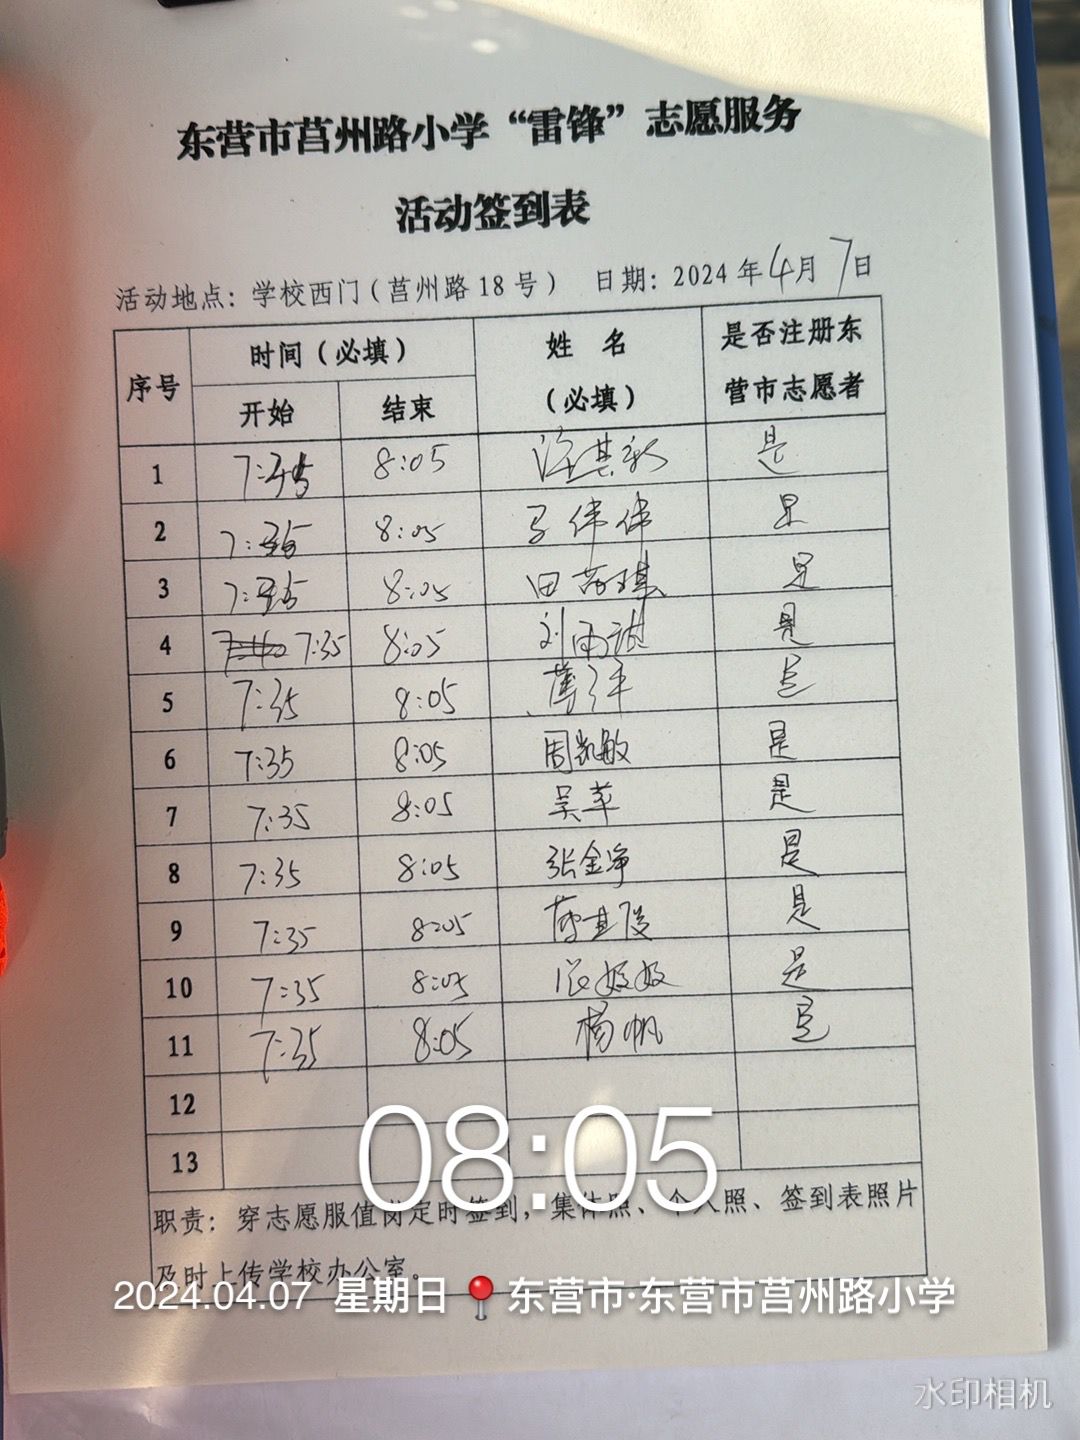 东营市莒州路小学“雷锋”志愿服务
活动签到表
活动地点：学校西门（莒州路18号） 日期：2024年4月7日
序号 时间（必填） 姓名（必填） 是否注册东营市志愿者
开始 结束
1 8:05 是
2 7:35 8:05 伟伟 是
3 7:35 8:05 田 是
4 7:35 8:05 刘雨 是
5 7:35 8:05 是
6 7:35 8:05 周凯敏 是
7 7:35 8:05 吴苹 是
8 7:35 8:05 张金净 是
9 7:35 8:05 是
10 7:35 8:05 是
11 7:35 8:05 杨帆 是
12
13
职责：穿志愿服值岗定时签到，集体照、个人照、签到表照片
及时上传学校办公室。
08:05
2024.04.07 星期日 东营市·东营市莒州路小学
水印相机